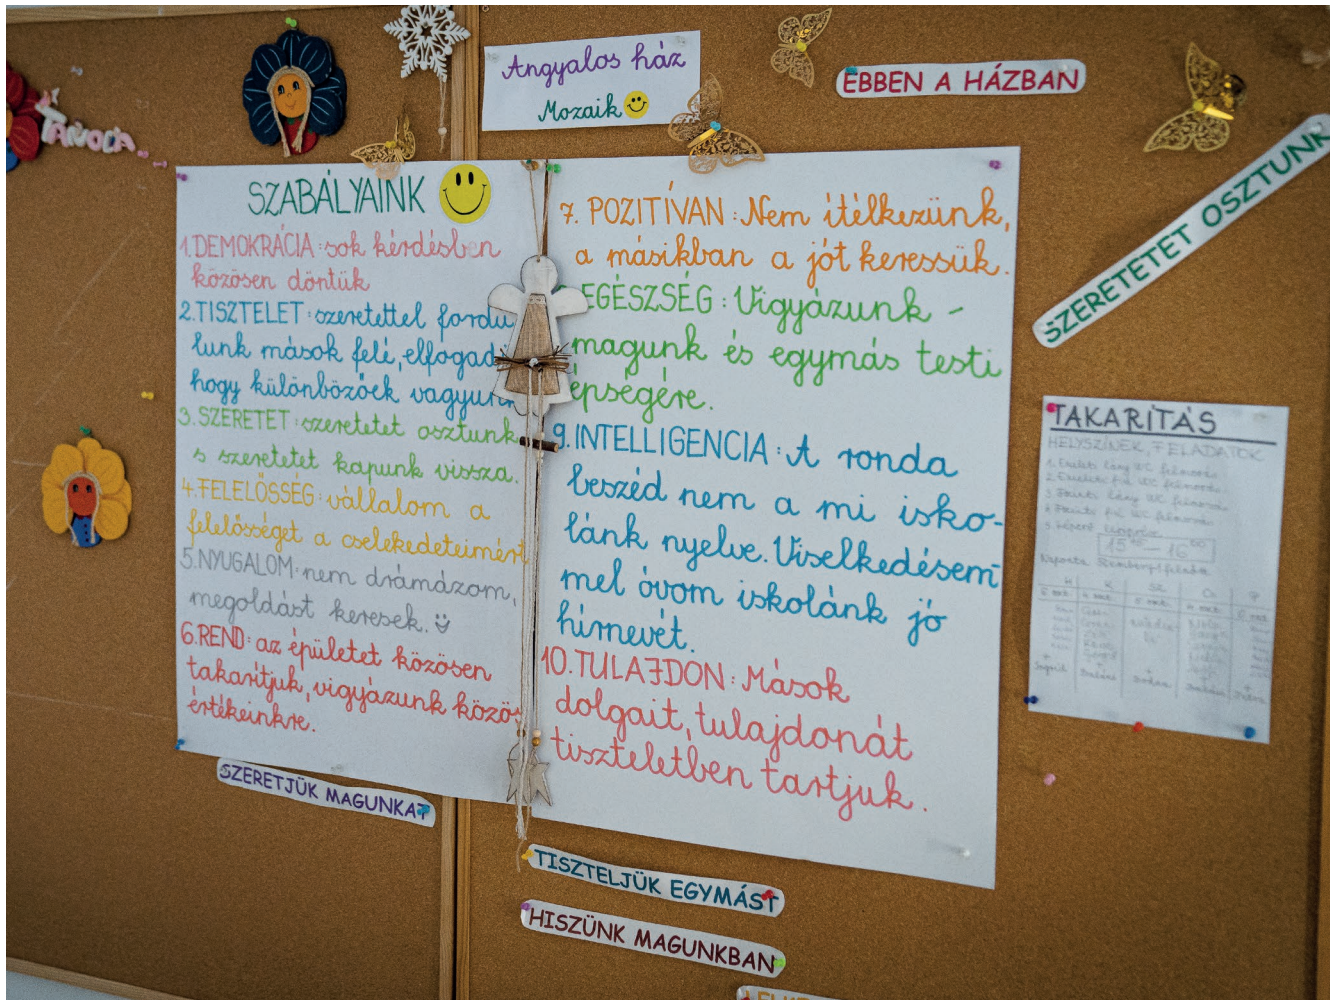 TANODA
Angyalos ház
Mozaik
EBBEN A HÁZBAN
SZERETETET OSZTUNK
SZABÁLYAINK
1. DEMOKRÁCIA: sok kérdésben
közösen döntük
2. TISZTELET: szeretettel fordu
lunk mások felé, elfogad
hogy különbözőek vagyunk
3. SZERETET: szeretetet osztunk
s szeretetet kapunk vissza.
4. FELELŐSSÉG: vállalom a
felelősséget a cselekedeteimért
5. NYUGALOM: nem drámázom,
megoldást keresek.
6. REND: az épületet közösen
takarítjuk, vigyázunk közös
értékeinkre.
7. POZITÍVAN: Nem ítélkezünk,
a másikban a jót keressük.
EGÉSZSÉG: Vigyázunk -
magunk és egymás testi
épségére.
9. INTELLIGENCIA: A ronda
beszéd nem a mi isko-
lánk nyelve. Viselkedésem-
mel óvom iskolánk jó
hírnevét.
10. TULAJDON: Mások
dolgait, tulajdonát
tiszteletben tartjuk.
TAKARÍTÁS
HELYSZÍNEK, FELADATOK
1. Emeleti lány WC felmosás
2. Emeleti fiú WC felmosás
WC felmosás
WC felmosás
H K SZ Cs P
SZERETJÜK MAGUNKAT
TISZTELJÜK EGYMÁST
HISZÜNK MAGUNKBAN